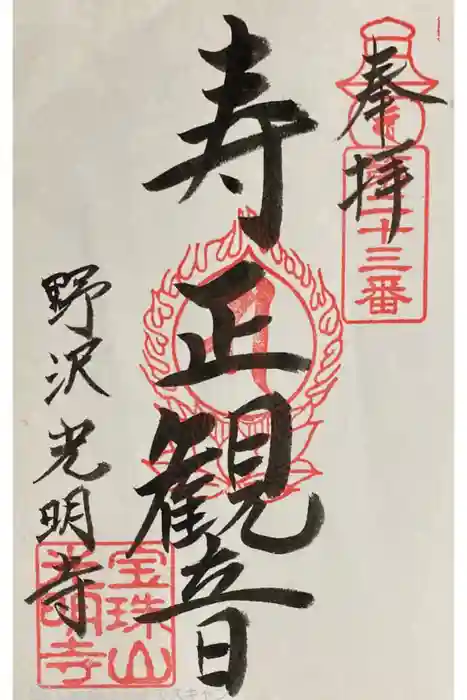 奉拝
第二十三番
寿正観音
野沢光明寺
宝珠山
光明寺